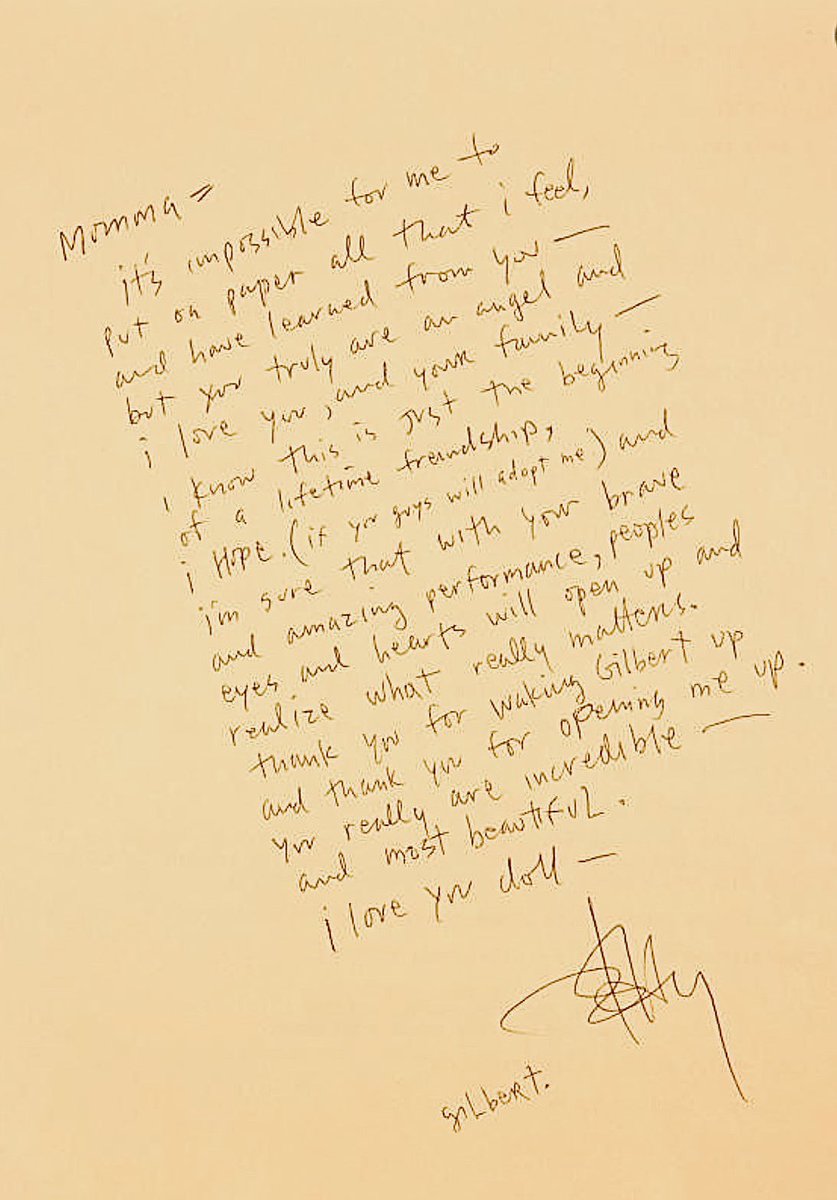 Momma =
it's impossible for me to
put on paper all that i feel,
and have learned from you —
but you truly are an angel and
i love you, and your family —
i know this is just the beginning
of a lifetime freindship,
i Hope. (if you guys will adopt me) and
i'm sure that with your brave
and amazing performance, peoples
eyes and hearts will open up and
realize what really matters.
thank you for waking Gilbert up
and thank you for opening me up.
you really are incredible —
and most beautifuL.
i love you doll —
giLbert.